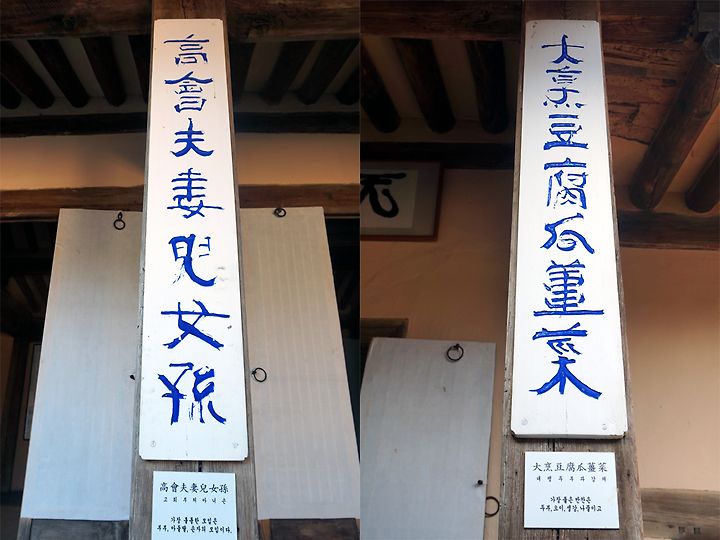 高會夫妻兒女孫
高會夫妻兒女孫
고회부처아녀손
가장 훌륭한 모임은
부부, 아들딸, 손자의 모임이다.
大烹豆腐瓜薑菜
大烹豆腐瓜薑菜
대팽두부과강채
가장 좋은 반찬은
두부, 오이, 생강, 나물이고